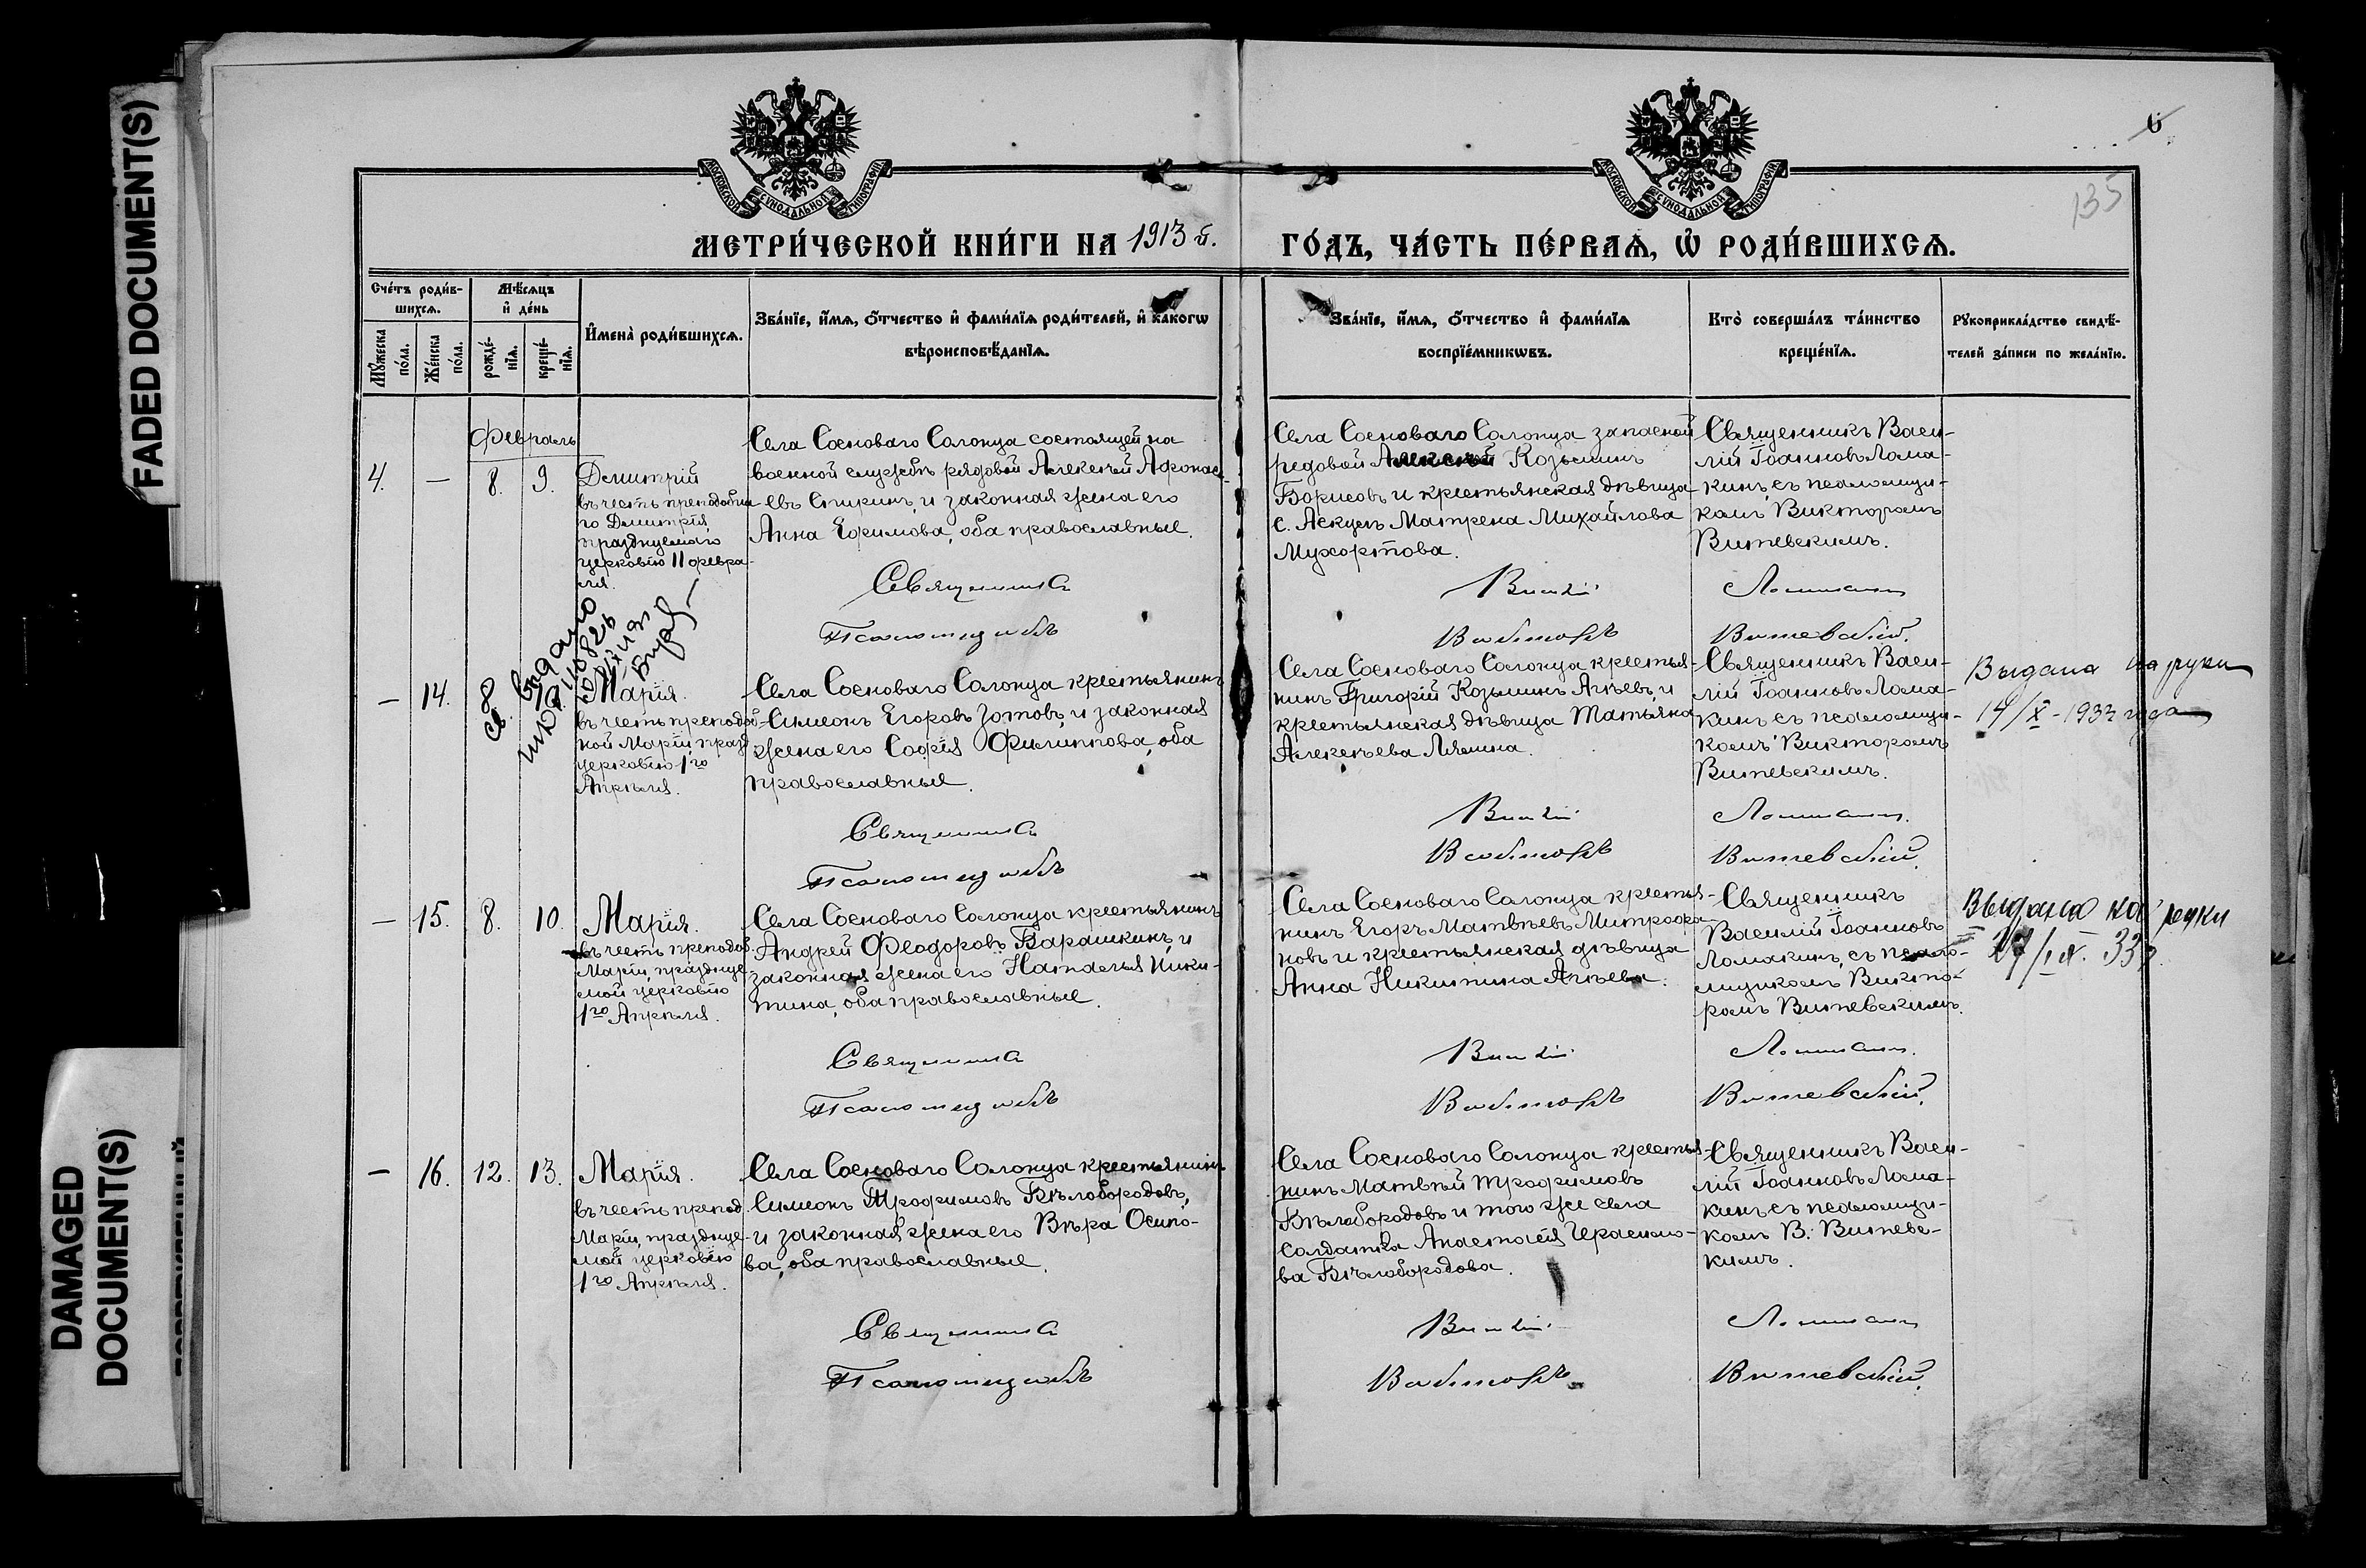 FADED DOCUMENT(S)
DAMAGED
DOCUMENT(S)
6
135
МОСКОВСКОЙ СѴНОДАЛЬНОЙ ТИПОГРАФІИ
МОСКОВСКОЙ СѴНОДАЛЬНОЙ ТИПОГРАФІИ
МЕТРИ́ЧЕСКОЙ КНИ́ГИ НА 1913 г.
ГО́ДЪ, ЧА́СТЬ ПЕ́РВАѦ, Ѡ҆ РОДИ́ВШИХСѦ.
Сче́тъ роди́в-
шихсѧ.
Мꙋ́жеска
по́ла.
Же́нска
по́ла.
Мѣ́сѧцъ
и҆ де́нь
рожде́-
нїѧ.
креще́-
нїѧ.
И҆мена̀ роди́вшихсѧ.
Зва́нїе, и҆́мѧ, ѻ҆́тчество и҆ фами́лїѧ роди́телей, и҆ како́гѡ
вѣроисповѣ́данїѧ.
Зва́нїе, и҆́мѧ, ѻ҆́тчество и҆ фами́лїѧ
воспрїе́мникѡвъ.
Кто̀ соверша́лъ та́инство
креще́нїѧ.
Рꙋкоприкла́дство свидѣ́-
телей за́писи по жела́нїю.
Февраль
4.
—
8.
9.
Димитрій
въ честь преподобна
го Димитрія,
празднуемаго
церковію 11 февра-
ля.
Села Сосноваго Солонца состоящей на
военной службѣ рядовой Алексѣй Афонась-
евъ Спиринъ, и законная жена его
Анна Ефимова, оба православные.
Священникъ
Псаломщикъ
Села Сосноваго Солонца запасной
редовой Козьминъ
Борисовъ и крестьянская дѣвица
с. Аскулъ Матрена Михайлова
Мухортова.
Василій
Викторъ
Священникъ Васи-
лій Іоанновъ Лома-
кинъ, съ псаломщи-
комъ Викторомъ
Витевскимъ.
Ломакинъ
Витевскій.
св. выдано
—
14.
8
10
Марія.
въ честь преподоб-
ной Маріи, празд.
церковію 1го
Апрѣля.
Села Сосноваго Солонца крестьянинъ
Симеонъ Егоровъ Зотовъ, и законная
жена его Софія Филиппова, оба
православные.
Священникъ
Псаломщикъ
Села Сосноваго Солонца крестья-
нинъ Григорій Козьминъ Агѣевъ, и
крестьянская дѣвица Татьяна
Алексѣева Ляшина.
Василій
Викторъ
Священникъ Васи-
лій Іоанновъ Лома-
кинъ съ псаломщи-
комъ Викторомъ
Витевскимъ.
Ломакинъ.
Витевскій.
Выдана на руки
14/X - 1933 года
—
15.
8.
10.
Марія.
въ честь преподоб.
Маріи, празднуе
мой церковію
1го Апрѣля.
Села Сосноваго Солонца крестьянинъ
Андрей Феодоровъ Барашкинъ, и
законная жена его Наталья Ники-
тина, оба православные.
Священникъ
Псаломщикъ
Села Сосноваго Солонца крестья-
нинъ Егоръ Матвѣевъ Митрофа-
новъ и крестьянская дѣвица
Анна Никитина Агѣева.
Василій
Викторъ
Священникъ
Василій Іоанновъ
Ломакинъ, съ псало-
мщикомъ Викто-
ромъ Витевскимъ.
Ломакинъ.
Витевскій.
Выдано на руки
27/IX. 33 г.
—
16.
12.
13.
Марія.
въ честь препод.
Маріи, празднуе-
мой церковію
1го Апрѣля.
Села Сосноваго Солонца крестьянинъ
Симеонъ Трофимовъ Бѣлобородовъ,
и законная жена его Вѣра Осипо-
ва, оба православные.
Священникъ
Псаломщикъ
Села Сосноваго Солонца крестья-
нинъ Матвѣй Трофимовъ
Бѣлобородовъ и того же села
солдатка Анастасія Герасимо-
ва Бѣлобородова.
Василій
Викторъ
Священникъ Васи-
лій Іоанновъ Лома-
кинъ съ псаломщи-
комъ В. Витевс-
кимъ.
Ломакинъ
Витевскій.